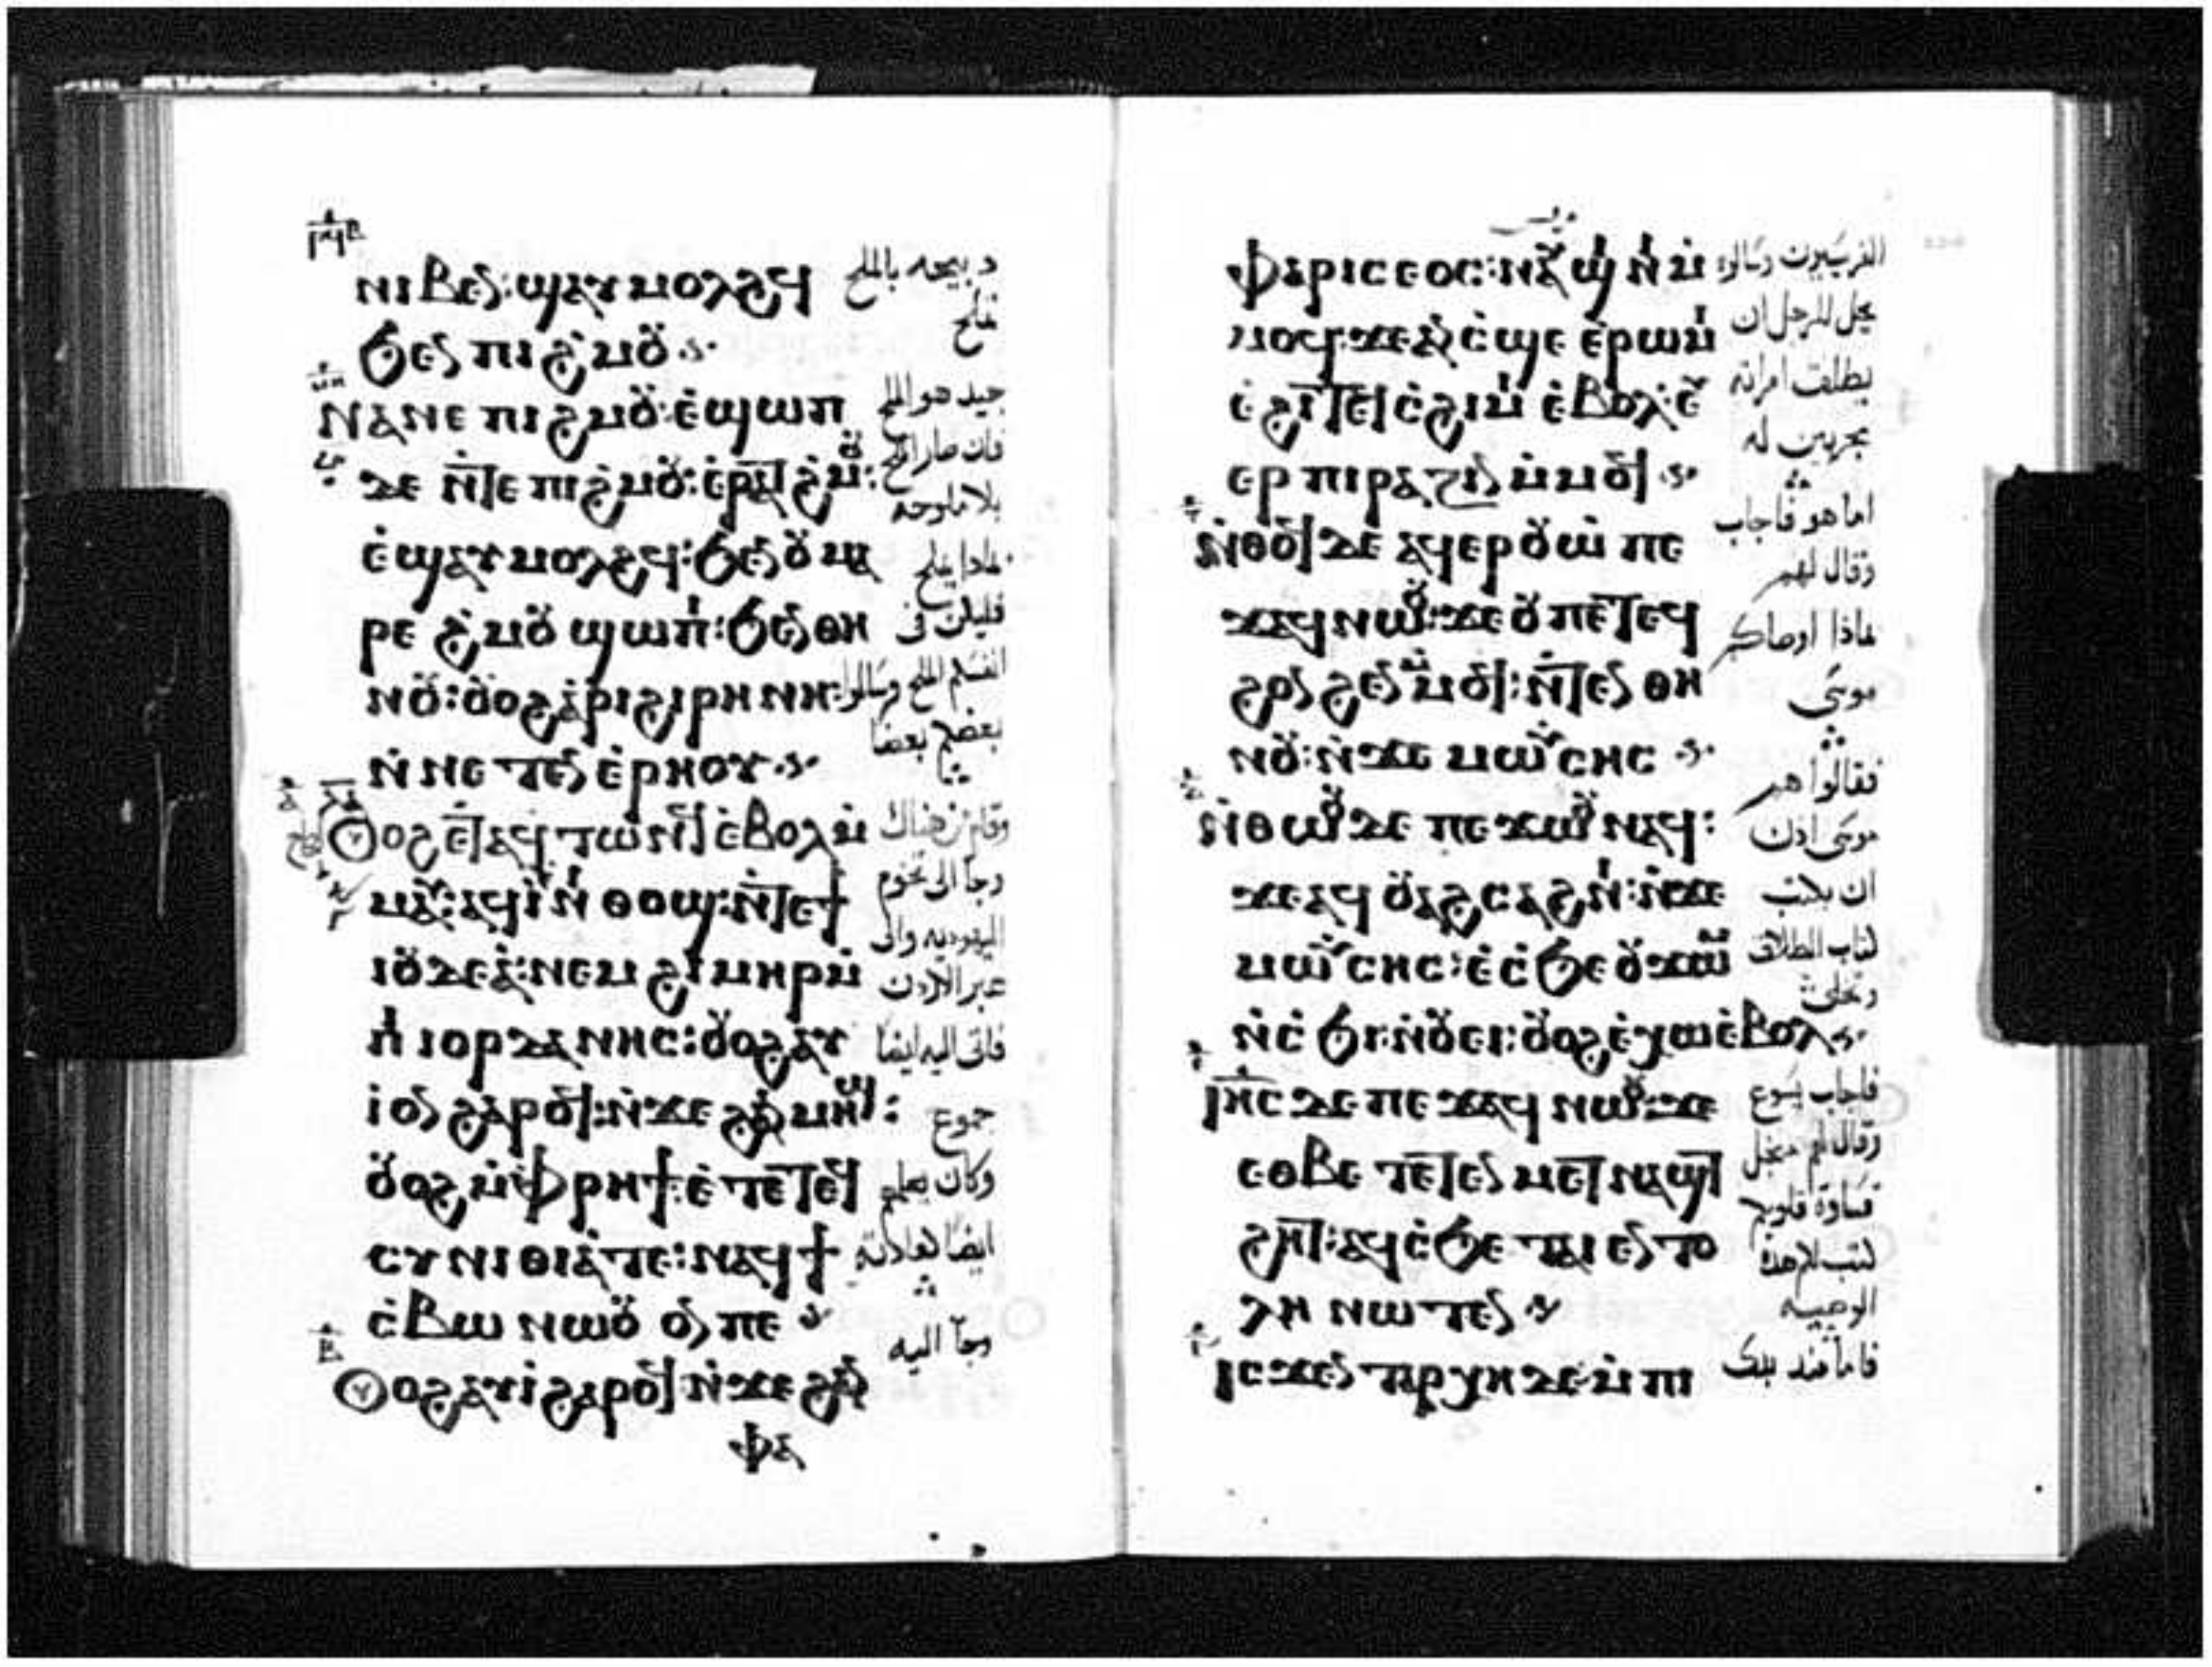 ⲛⲓⲃⲉⲛ: ϣⲁⲩⲙⲟⲗϩϥ
ϧⲉⲛ ⲡⲓϩ̇ⲙⲟⲩ
ⲛⲁⲛⲉ ⲡⲓϩⲙⲟⲩ: ⲉ̇ϣⲱⲡ
ⲇⲉ ⲛ̇ⲧⲉ ⲡⲓϩ̇ⲙⲟⲩ: ⲉⲣⲁⲧϩ̇ⲙⲟⲩ:
ⲉ̇ϣⲁⲩⲙⲟⲗϩϥ: ϧⲉⲛ ⲟⲩ ⲙⲁ
ⲣⲉ ϩ̇ⲙⲟⲩ ϣⲱⲡⲓ: ϧⲉⲛ ⲑⲏ
ⲛⲟⲩ: ⲟⲩⲟϩ ⲁ̇ⲣⲓϩⲓⲣⲏⲛⲏ:
ⲛ̇ⲛⲉⲧⲉⲛⲉ̇ⲣⲏⲟⲩ
ⲟⲩⲟϩ ⲉⲧⲁϥⲧⲱⲛϥ ⲉ̇ⲃⲟⲗ ⲙ̇
ⲙⲁⲩ: ⲁϥⲓ̇ ⲛⲓ ⲑⲟϣ: ⲛ̇ⲧⲉϯ
ⲓⲟⲩⲇⲉⲁ̇: ⲛⲉⲙ ϩⲓⲙⲏⲣ ⲙ̇
ⲡⲓ ⲓⲟⲣⲇⲁⲛⲏⲥ: ⲟⲩⲟϩ ⲁⲩ
ⲓ̇ ⲟⲛ ϩⲁⲣⲟϥ: ⲛ̇ϫⲉ ϩⲁⲛⲙⲏϣ:
ⲟⲩⲟϩ ⲙ̇ⲫⲣⲏϯ: ⲉ̇ⲧⲉⲧⲉϥ
ⲥⲩⲛⲓⲑⲓⲁ̇ⲧⲉ: ⲛⲁϥϯ
ⲥ̇ⲃⲱ ⲛⲱⲟⲩ ⲟⲛ ⲡⲉ
ⲟⲩⲟϩ ⲁⲩⲓ̇ ϩⲁⲣⲟϥ ⲛ̇ϫⲉ ϩⲁⲛ
ⲫⲁ
دبيحه بالملح
جيد هو الملح
فان صار الملح
بلا ملوحه
فليكن في
انفسكم الملح وسالموا
بعضكم بعضا
وقام من هناك
وجا الى تخوم
اليهوديه والى
عبر الاردن
فاتى اليه ايضا
جموع
وكان يعلم
ايضا كعادته
وجا اليه
ⲫⲁⲣⲓⲥⲉⲟⲥ: ⲛⲁⲩϣⲓⲛⲓ ⲙ̇
ⲙⲟϥ: ϫⲉ ⲁⲛ ⲥ̇ϣⲉ ⲉ̇ⲣⲱⲙⲓ
ⲉ̇ϩⲓⲧⲉϥⲥ̇ϩⲓⲙⲓ ⲉ̇ⲃⲟⲗ: ⲉⲩ
ⲉⲣⲡⲓⲣⲁⲍⲓⲛ ⲙ̇ⲙⲟϥ
ⲛ̇ⲑⲟϥ ⲇⲉ ⲁϥⲉⲣⲟⲩⲱ̇ ⲡⲉ
ϫⲁϥ ⲛⲱⲟⲩ: ϫⲉ ⲟⲩ ⲡⲉⲧⲉϥ
ϩⲟⲛϩⲉⲛ ⲙ̇ⲙⲟϥ: ⲛ̇ⲧⲉⲛ ⲑⲏ
ⲛⲟⲩ: ⲛ̇ϫⲉ ⲙⲱⲩ̈ⲥⲏⲥ
ⲛ̇ⲑⲱⲟⲩ ⲇⲉ ⲡⲉϫⲱⲟⲩ ⲛⲁϥ:
ϫⲉ ⲁϥⲟⲩⲁϩⲥⲁϩⲛⲓ: ⲛ̇ϫⲉ
ⲙⲱⲩ̈ⲥⲏⲥ: ⲉ̇ⲥ̇ϧⲉ ⲟⲩϫⲱⲙ
ⲛ̇ⲥ̇ϧⲓ: ⲛ̇ⲟⲩⲉⲓ: ⲟⲩⲟϩ ⲉ̇ⲭⲱ ⲉ̇ⲃⲟⲗ
ⲓⲏ̅ⲥ ⲇⲉ ⲡⲉϫⲁϥ ⲛⲱⲟⲩ: ϫⲉ
ⲉⲑⲃⲉ ⲧⲉⲧⲉⲛⲙⲉⲧⲛⲁϣⲧ
ϩⲏⲧ: ⲁϥⲥ̇ϧⲉ ⲧⲁⲓ ⲉⲛⲧⲟ
ⲗⲏ ⲛⲱⲧⲉⲛ
ⲓⲥϫⲉⲛ ⲧⲁⲣⲭⲏ ⲇⲉ: ⲙ̇ⲡⲓ
الفريسيون وسالوه
يحل للرجل ان
يطلق امراته
يجربين له
اما هو فاجاب
وقال لهم
بماذا اوصاكم
موسى
فقالوا هم
موسى اذن
ان يكتب
كتاب الطلاق
وتخلى
فاجاب يسوع
وقال لهم من اجل
قساوة قلوبكم
كتب لكم هذه
الوصيه